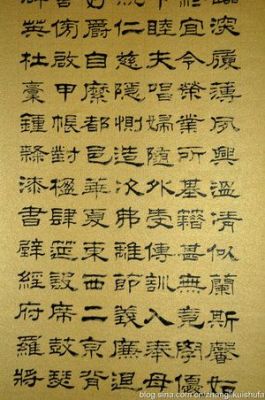 深履薄夙興溫凊似蘭斯馨如
宜令榮業所基籍甚無竟學優
睦夫唱婦隨外受傅訓入奉母
仁慈隱惻造次弗離節義廉退
好爵自縻都邑華夏東西二京背
傍啟甲帳對楹肆筵設席鼓瑟
群英杜稾鍾隸漆書壁經府羅將
blog.sina.com.cn/zhangkuishufa